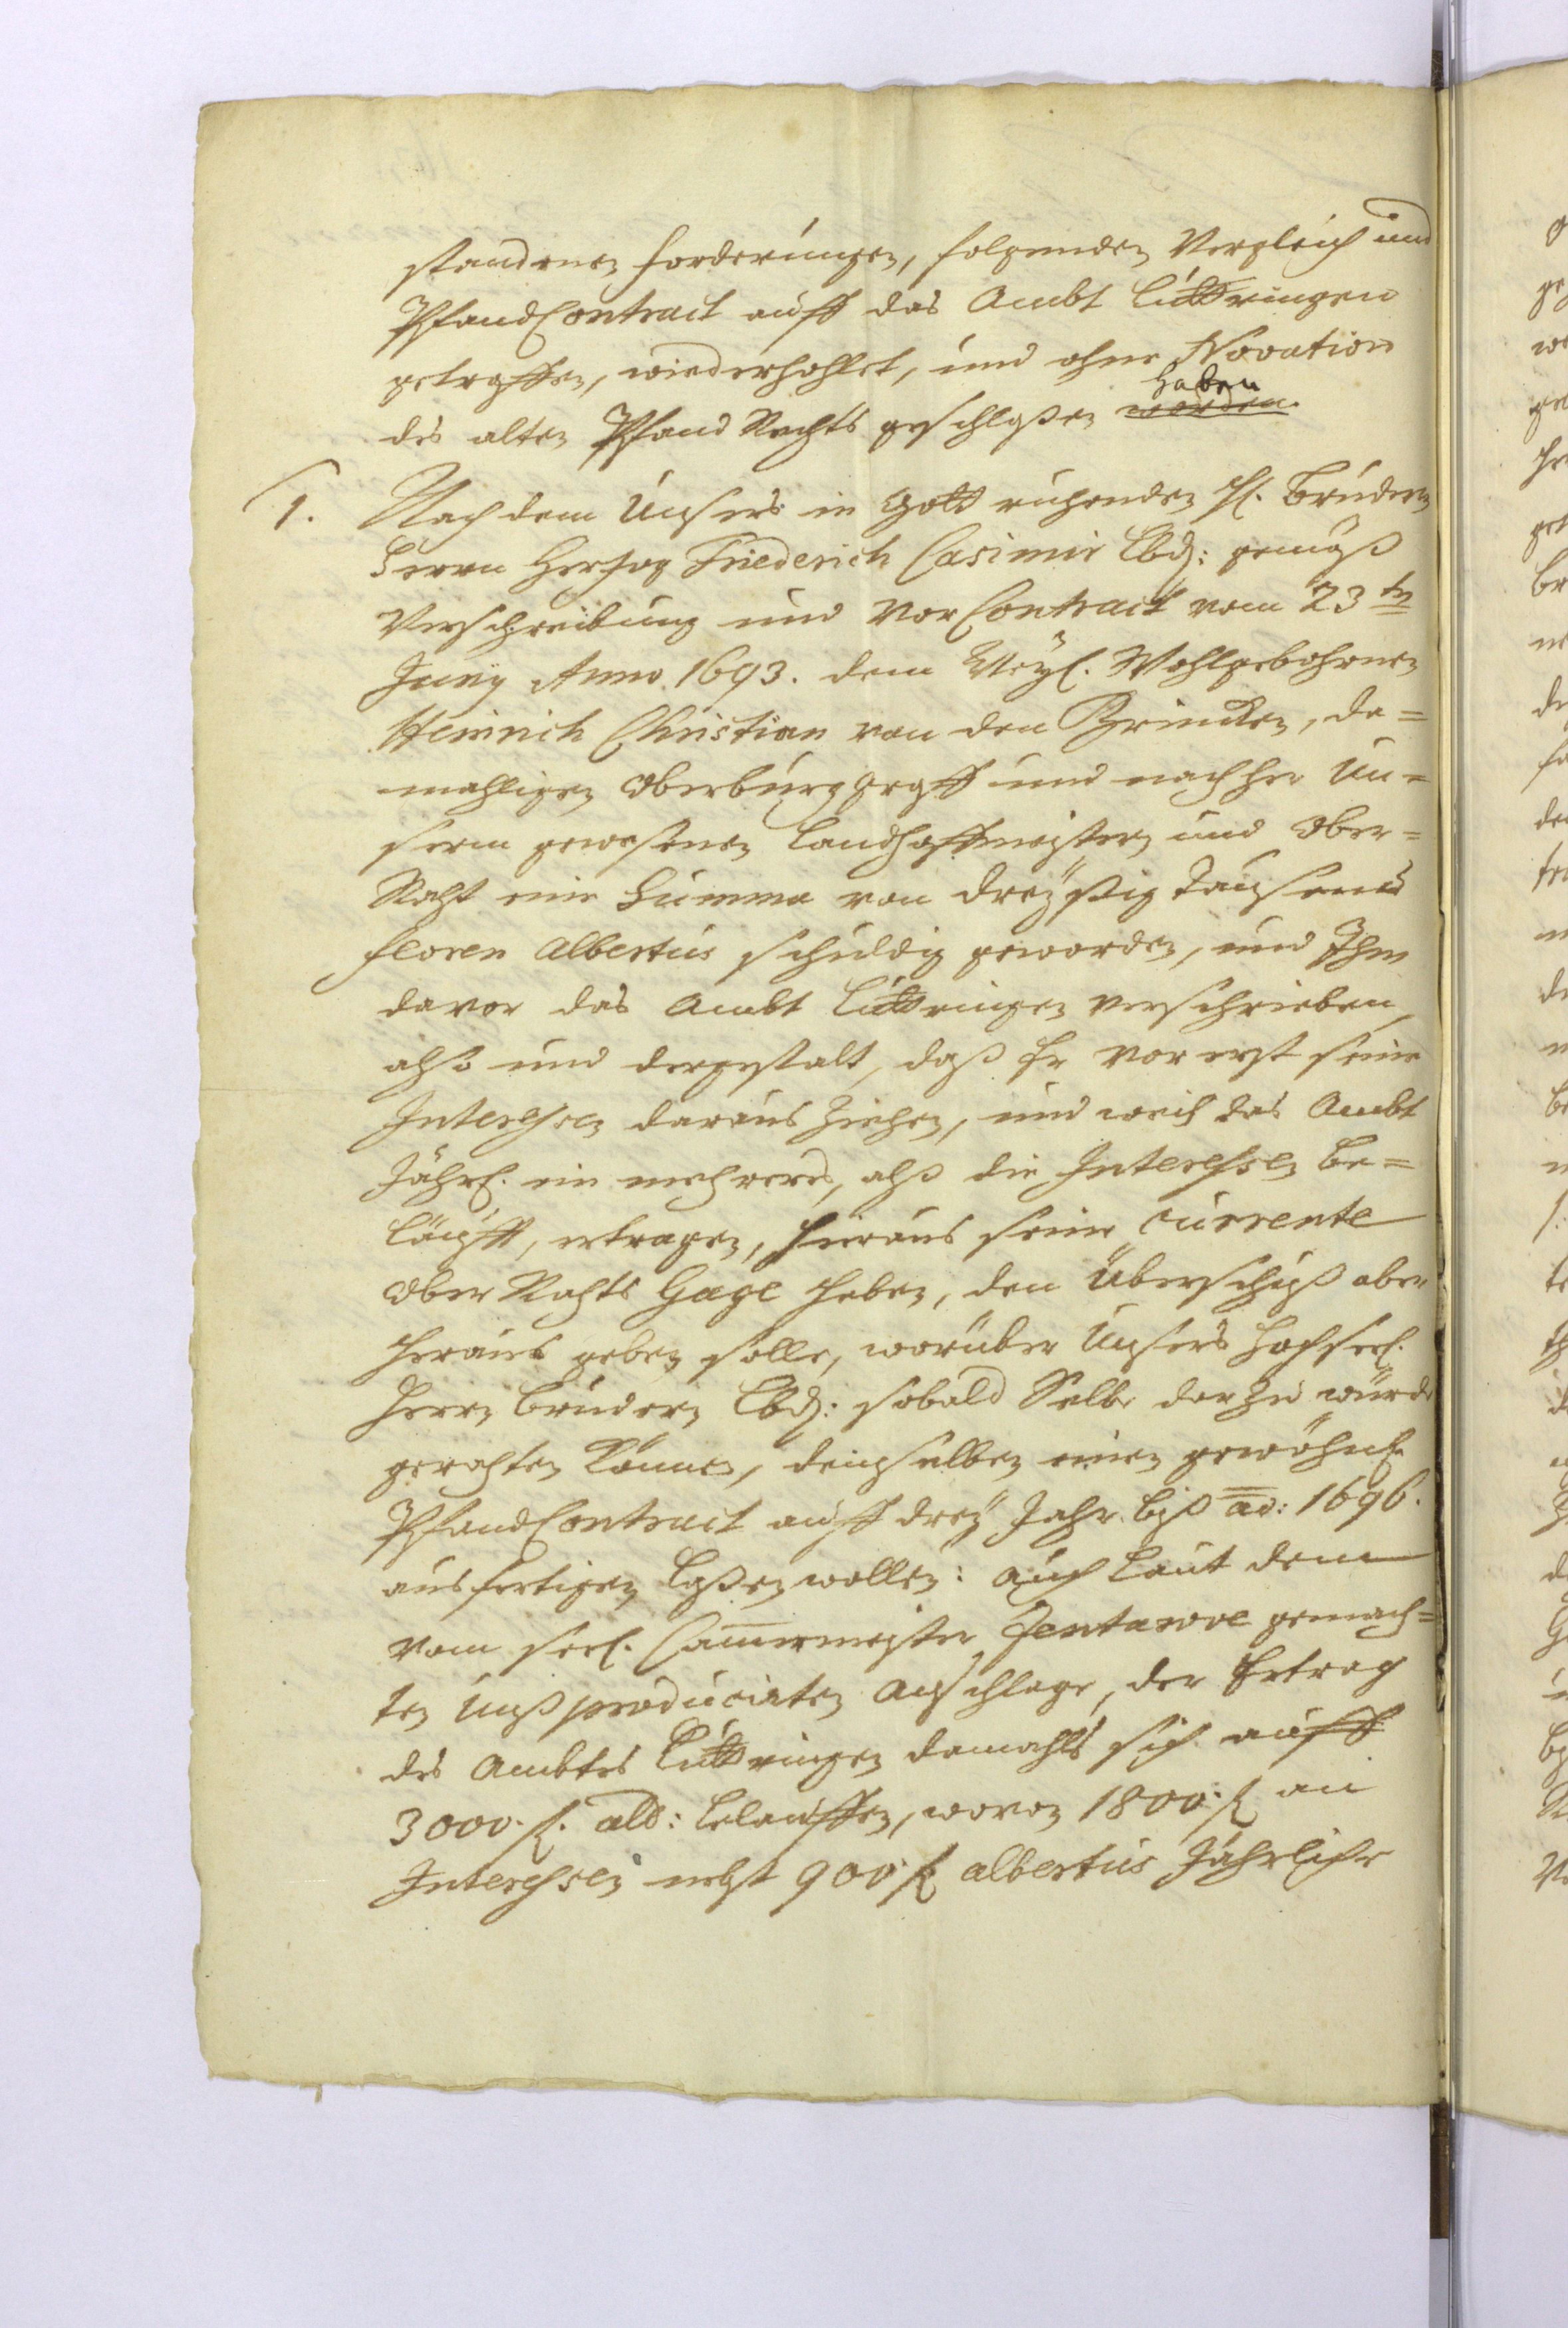 standenen forderungen, folgenden Vergleich und
PfandContract auff das Ambt Luttringen
getroffen, wiederhohlet, und ohne Novation
des alten Pfand Rechts geschloßen worden. haben
1. Nach dem Unsers in Gott ruhenden H. Bruders
Herrn Hertzog Friederich Casimir Lbd: gemäß
Verschreibung und VorContract vom 23 ten
Juny Anno 1693. dem Weyl. Wohlgebohrnen
Heinrich Christian von den Brincken, da=
mahligen Oberburggraff und nachher Un=
serm gewesenen Landhoffmeistern und Ober=
Raht eine Summa von dreyßig Tausend
floren Albertus schuldig geworden, und Ihm
davor das Ambt Luttringen verschrieben,
also und dergestalt, daß Er vor erst seine
Interessen daraus ziehen, und weil das Ambt
Jährl. ein mehreres, alß die Interessen be=
läufft, ertragen, hieraus seine currente
Ober Rahts Gage heben, den Überschuß aber
heraus geben solle, worüber Unsers Hochseel.
Herrn Brudern Lbd: sobald Selbe darzu würde
gerahten können, demselben einen gewöhnl.
PfandContract auff drey Jahr biß ao: 1696.
ausfertigen laßen wollen: Auch Laut dem
vom seel. Cammermeister Jentarove gemach=
ten Unß producirten Anschlage, der Ertrag
des Ambtes Luttringen damahls sich auff
3000. fl. alb: belauffen, wovon 1800. fl an
Interessen nebst 900. fl albertus Jährliche